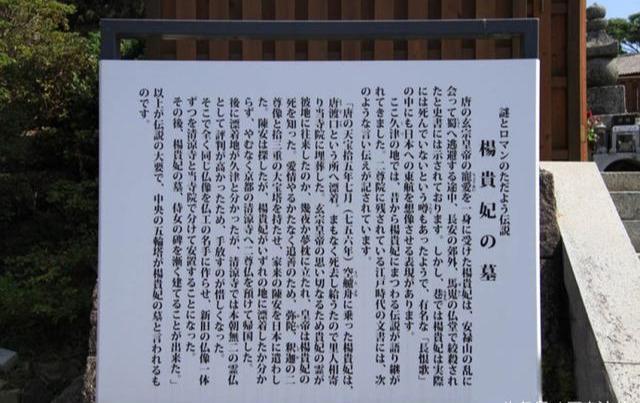 謎とロマンのただよう伝説
楊貴妃の墓
唐の玄宗皇帝の寵愛を一身に受けた楊貴妃は、安禄山の乱に
会って蜀へ逃避する途中、長安の郊外、馬嵬の仏堂で絞殺され
たと史実には示されております。しかし、巷では楊貴妃は実際
には死んでいないという噂もあったようで、有名な「長恨歌」
の中にも日本への東航を想像させる表現があります。
ここ久津の地では、昔から楊貴妃にまつわる伝説が語り継が
れてきました。二尊院に残されている江戸時代の文書には、次
のような言い伝えが記されています。
「唐の天宝拾五年七月（七五六年）空艫舟に乗った楊貴妃は、
唐渡口という所へ漂着、まもなく死去し給うたので里人相寄
り当寺院に埋葬した。玄宗皇帝の思い切なるため貴妃の霊が
彼地に往来したのか、幾夜か夢枕に立たれ、皇帝は楊貴妃の
死を知った。愛情やるかたなく追善のため、弥陀、釈迦の二
尊像と拾三重の大宝塔を持たせ、家来の陳安を日本に遣わし
た。陳安は探したが、楊貴妃がいずれの地に漂着したか分か
らず、やむなく京都の清涼寺へ二尊仏を預けて帰国した。
後に漂着地が久津と分かったが、清涼寺では本朝無二の霊仏
として評判が高かったため、手放すのが惜しくなった。
そこで全く同じ仏像を仏工の名手に作らせ、新旧の仏像一体
ずつを清涼寺と当寺院で分けて安置することになった。
その後、楊貴妃の墓、侍女の碑を漸く建てることが出来た。」
以上が伝説の大要で、中央の五輪塔が楊貴妃の墓と言われるも
のです。